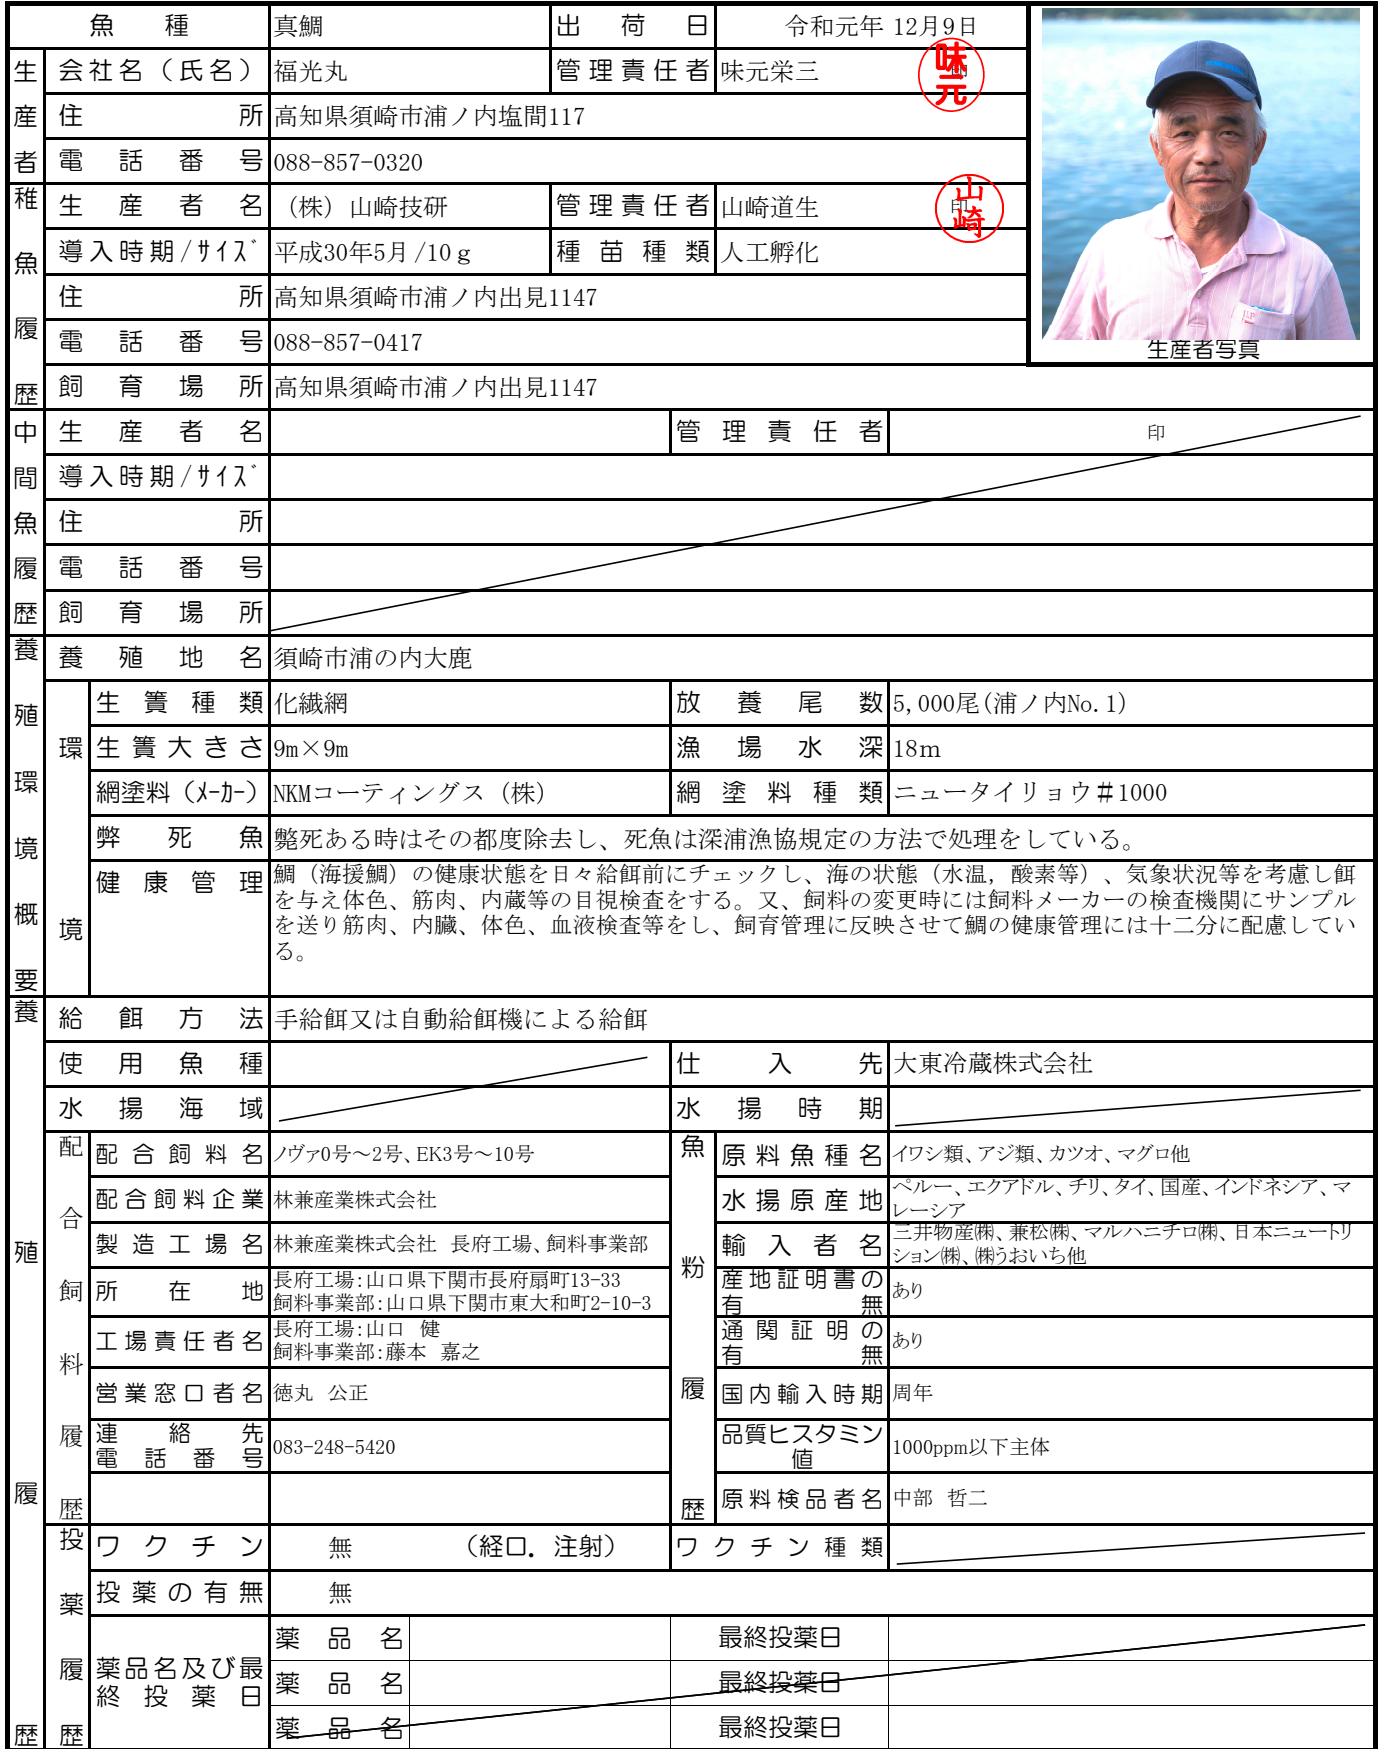 魚種 真鯛 出荷日 令和元年 12月9日
生産者
会社名（氏名） 福光丸 管理責任者 味元栄三 印 味元
住所 高知県須崎市浦ノ内塩間117
電話番号 088-857-0320
生産者写真
稚魚履歴
生産者名 （株）山崎技研 管理責任者 山崎道生 印 山崎
導入時期/ｻｲｽﾞ 平成30年5月/10ｇ 種苗種類 人工孵化
住所 高知県須崎市浦ノ内出見1147
電話番号 088-857-0417
飼育場所 高知県須崎市浦ノ内出見1147
中間魚履歴
生産者名 管理責任者 印
導入時期/ｻｲｽﾞ
住所
電話番号
飼育場所
養殖環境概要
養殖地名 須崎市浦の内大鹿
環境
生簀種類 化繊網 放養尾数 5,000尾(浦ノ内No.1)
生簀大きさ 9m×9m 漁場水深 18ｍ
網塗料（ﾒｰｶｰ） NKMコーティングス（株） 網塗料種類 ニュータイリョウ＃1000
弊死魚 斃死ある時はその都度除去し、死魚は深浦漁協規定の方法で処理をしている。
健康管理 鯛（海援鯛）の健康状態を日々給餌前にチェックし、海の状態（水温，酸素等）、気象状況等を考慮し餌
を与え体色、筋肉、内蔵等の目視検査をする。又、飼料の変更時には飼料メーカーの検査機関にサンプル
を送り筋肉、内臓、体色、血液検査等をし、飼育管理に反映させて鯛の健康管理には十二分に配慮してい
る。
養殖履歴
給餌方法 手給餌又は自動給餌機による給餌
使用魚種 仕入先 大東冷蔵株式会社
水揚海域 水揚時期
配合飼料履歴
配合飼料名 ノヴァ0号～2号、EK3号～10号
配合飼料企業 林兼産業株式会社
製造工場名 林兼産業株式会社 長府工場、飼料事業部
所在地 長府工場:山口県下関市長府扇町13-33
飼料事業部:山口県下関市東大和町2-10-3
工場責任者名 長府工場:山口 健
飼料事業部:藤本 嘉之
営業窓口者名 徳丸 公正
連絡先
電話番号 083-248-5420
魚粉履歴
原料魚種名 イワシ類、アジ類、カツオ、マグロ他
水揚原産地 ペルー、エクアドル、チリ、タイ、国産、インドネシア、マ
レーシア
輸入者名 三井物産㈱、兼松㈱、マルハニチロ㈱、日本ニュートリ
ション㈱、㈱うおいち他
産地証明書の
有無 あり
通関証明の
有無 あり
国内輸入時期 周年
品質ヒスタミン
値 1000ppm以下主体
原料検品者名 中部 哲二
投薬履歴
ワクチン 無 （経口．注射） ワクチン種類
投薬の有無 無
薬品名及び最
終投薬日
薬品名 最終投薬日
薬品名 最終投薬日
薬品名 最終投薬日